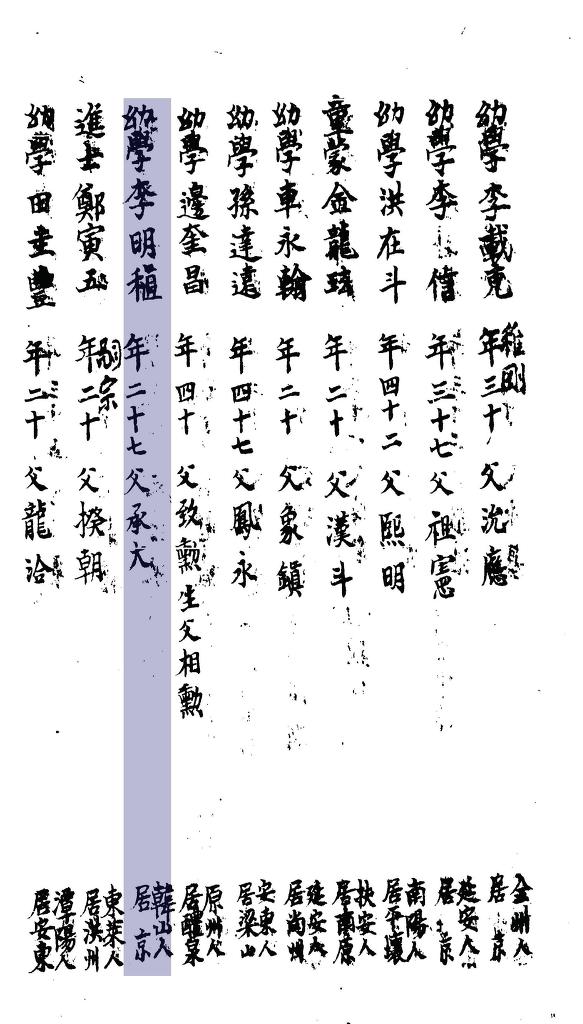 幼學李載克 年三十 父沇應 全州人 居京
稚剛
幼學李 僖 年三十七 父祖憲 延安人 居京
幼學洪在斗 年四十二 父熙明 南陽人 居平壤
童蒙金龍 年二十 父漢斗 扶安人 居南原
幼學車永翰 年二十 父象鎮 延安人 居尚州
幼學孫達遠 年四十七 父鳳永 安東人 居梁山
幼學邊奎昌 年四十 父致勳 生父相勳 原州人 居醴泉
幼學李明稙 年二十七 父承大 韓山人 居京
進士鄭寅五 年二十 父揆朝 東萊人 居洪州
嗣宗
幼學田圭豊 年二十三 父龍洽 潭陽人 居安東